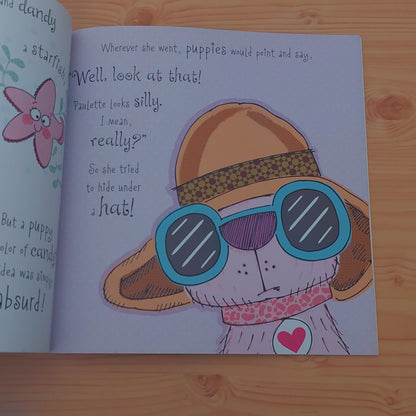 and dandy
a starfish
But a puppy
color of candy
idea was simply
absurd!
Wherever she went, puppies would point and say,
"Well, look at that!
Paulette looks silly.
I mean,
really?"
So she tried
to hide under
a hat!